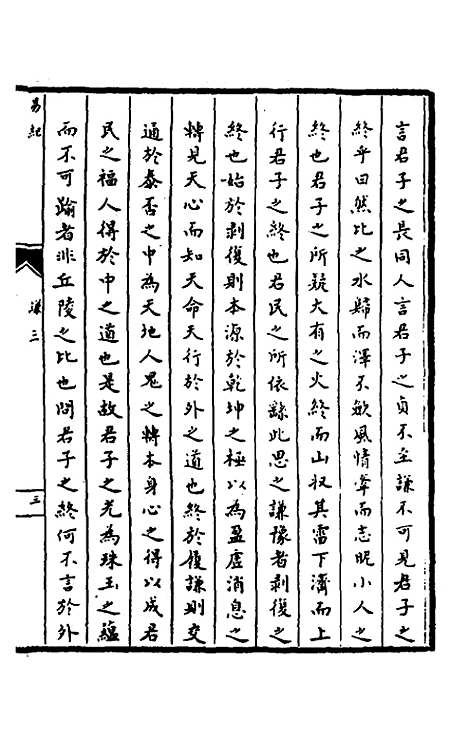 言君子之長同人言君子之貞不至謙不可見君子之
終乎曰然比之水歸而澤不歛風情牽而志昵小人之
終也君子之所兢大有之火終而山収其雷下濟而上
行君子之終也君民之所依繇此思之謙豫者剥復之
終也始於剥復則本源於乾坤之極以為盈虛消息之
轉見天心而知天命天行於外之道也終於復謙則交
通於泰否之中為天地人鬼之轉本身心之得以成君
民之福人得於中之道也是故君子之光為珠玉之蘊
而不可踰者非丘陵之比也問君子之終何不言於外
易紀
謙三
三